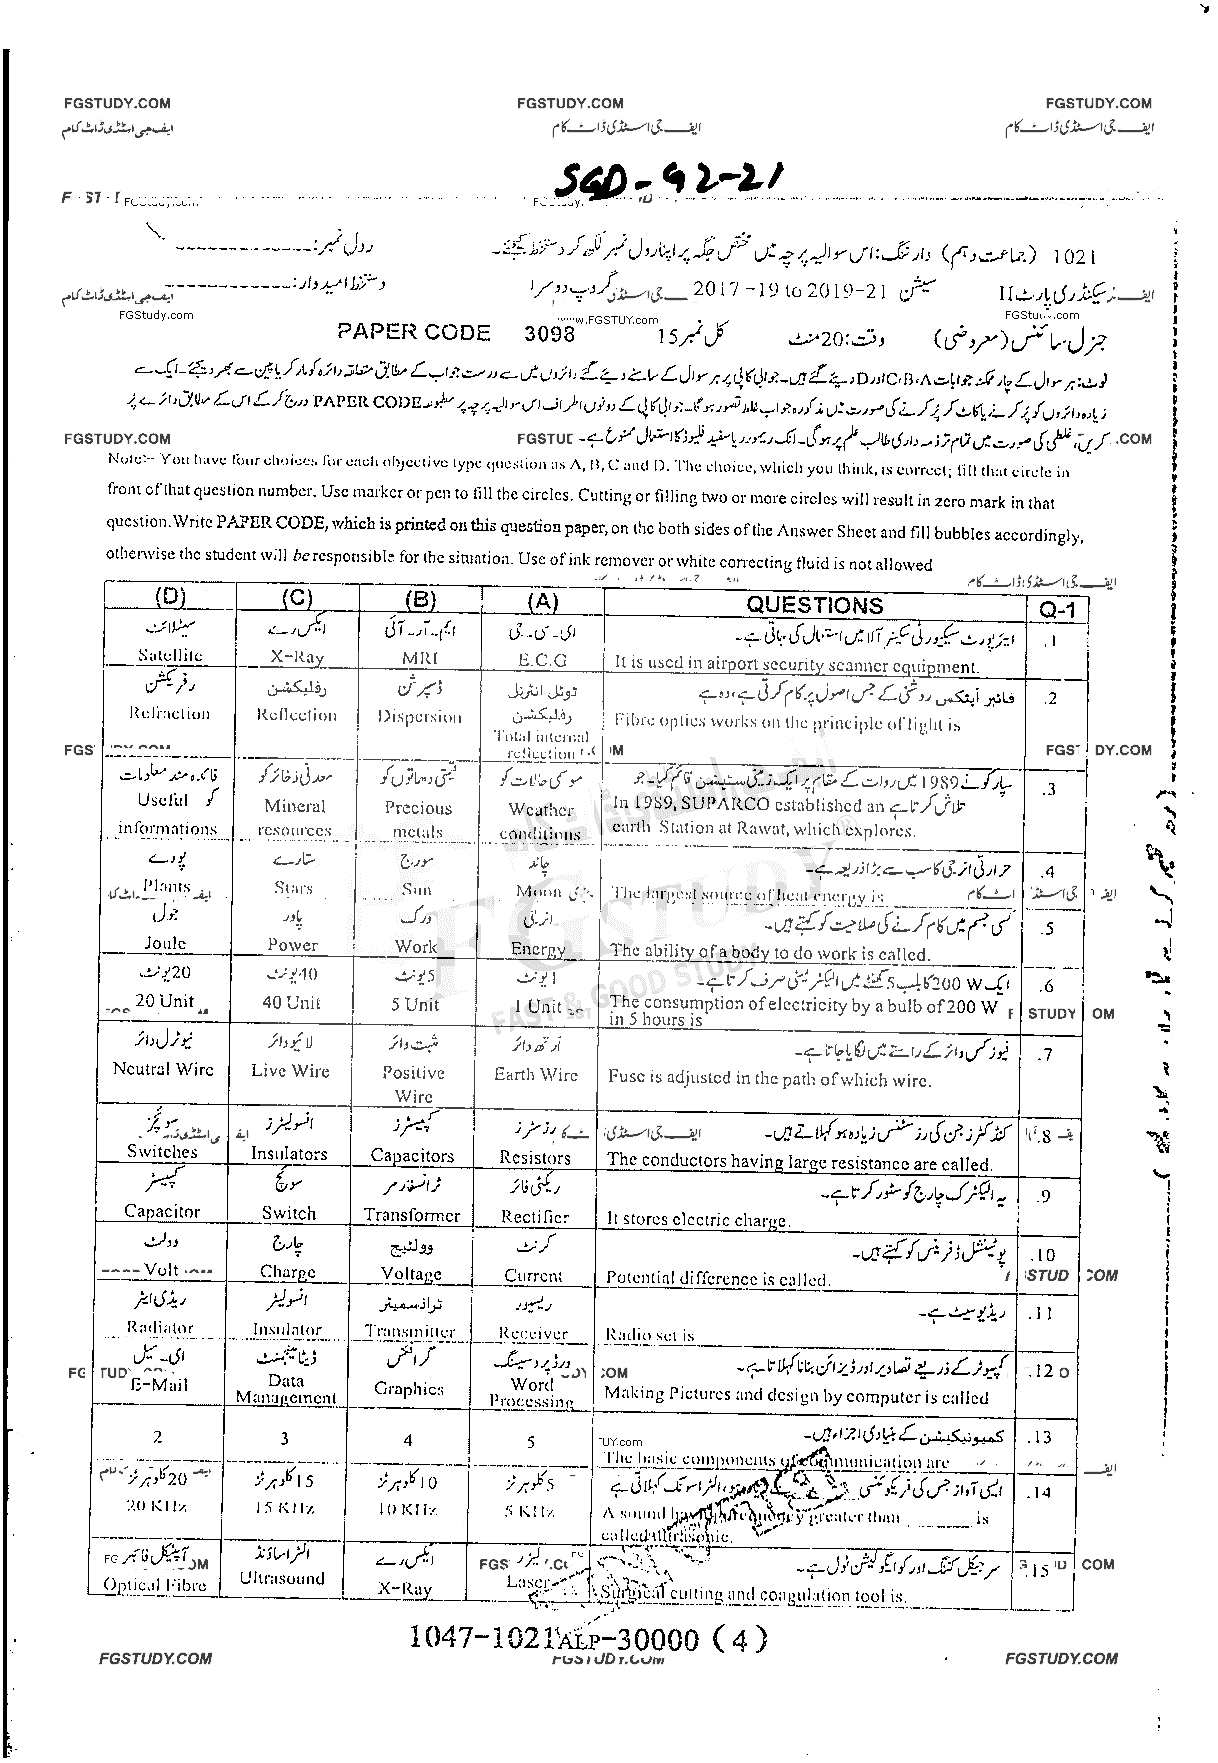 FGSTUDY.COM FGSTUDY.COM FGSTUDY.COM
ایف جی اسٹڈی ڈاٹ کام ایف جی اسٹڈی ڈاٹ کام ایف جی اسٹڈی ڈاٹ کام
SGD-G2-21
1021 (جماعت دہم) وارننگ: اس سوالیہ پرچہ میں مختص جگہ پر اپنا رول نمبر لکھ کر دستخط کیجئے۔ رول نمبر:
سیکنڈری پارٹ II سیشن 2017-19 to 2019-21 گروپ دوسرا دستخط امیدوار:
FGStudy.com
جنرل سائنس (معروضی) وقت: 20 منٹ کل نمبر 15 PAPER CODE 3098
نوٹ:۔ ہر سوال کے چار ممکنہ جوابات A،B،C اور D دیئے گئے ہیں۔ جوابی کاپی پر ہر سوال کے سامنے دیئے گئے دائروں میں سے درست جواب کے مطابق متعلقہ دائرہ کو مارکر یا پین سے بھر دیجئے۔ ایک سے
زیادہ دائروں کو پُر کرنے یا کاٹ کر پُر کرنے کی صورت میں مذکورہ جواب غلط تصور ہوگا۔ جوابی کاپی کے دونوں اطراف اس سوالیہ پرچہ پر مطبوعہ PAPER CODE درج کر کے اس کے مطابق دائرے پُر
کریں، غلطی کی صورت میں تمام تر ذمہ داری طالب علم پر ہوگی۔ انک ریموور یا سفید فلیوڈ کا استعمال ممنوع ہے۔
FGSTUDY.COM
Note:- You have four choices for each objective type question as A, B, C and D. The choice, which you think, is correct; fill that circle in
front of that question number. Use marker or pen to fill the circles. Cutting or filling two or more circles will result in zero mark in that
question. Write PAPER CODE, which is printed on this question paper, on the both sides of the Answer Sheet and fill bubbles accordingly,
otherwise the student will be responsible for the situation. Use of ink remover or white correcting fluid is not allowed
(D) (C) (B) (A) QUESTIONS Q-1
سیٹلائٹ ایکس رے ایم۔آر۔آئی ای۔سی۔جی ایئرپورٹ سیکیورٹی سکینر آلا میں استعمال کی جاتی ہے۔ .1
Satellite X-Ray MRI E.C.G It is used in airport security scanner equipment.
رفریکشن رفلیکشن ڈسپرشن ٹوٹل انٹرنل رفلیکشن فائبر آپٹکس روشنی کے جس اصول پر کام کرتی ہے، وہ ہے .2
Refraction Reflection Dispersion Total internal reflection Fibre optics works on the principle of light is
فائدہ مند معلومات کو معدنی ذخائر کو قیمتی دھاتوں کو موسمی حالات کو سپارکو نے 1989 میں روات کے مقام پر ایک زمینی سٹیشن قائم کیا۔ جو تلاش کرتا ہے .3
Useful informations Mineral resources Precious metals Weather conditions In 1989, SUPARCO established an earth Station at Rawat, which explores.
پودے ستارے سورج چاند حرارتی انرجی کا سب سے بڑا ذریعہ ہے۔ .4
Plants Stars Sun Moon The largest source of heat energy is
جول پاور ورک انرجی کسی جسم میں کام کرنے کی صلاحیت کو کہتے ہیں۔ .5
Joule Power Work Energy The ability of a body to do work is called.
20 یونٹ 40 یونٹ 5 یونٹ 1 یونٹ ایک 200 W کا بلب 5 گھنٹے میں الیکٹریسٹی صرف کرتا ہے۔ .6
20 Unit 40 Unit 5 Unit 1 Unit The consumption of electricity by a bulb of 200 W in 5 hours is
نیوٹرل وائر لائیو وائر مثبت وائر ارتھ وائر فیوز کس وائر کے راستے میں لگایا جاتا ہے۔ .7
Neutral Wire Live Wire Positive Wire Earth Wire Fuse is adjusted in the path of which wire.
سوئچز انسولیٹرز کپیسٹرز رزسٹرز کنڈکٹرز جن کی رزسٹنس زیادہ ہو کہلاتے ہیں۔ .8
Switches Insulators Capacitors Resistors The conductors having large resistance are called.
کپیسٹر سوئچ ٹرانسفارمر ریکٹی فائر یہ الیکٹرک چارج کو سٹور کرتا ہے۔ .9
Capacitor Switch Transformer Rectifier It stores electric charge.
وولٹ چارج وولٹیج کرنٹ پوٹینشل ڈفرینس کو کہتے ہیں۔ .10
Volt Charge Voltage Current Potential difference is called.
ریڈی ایٹر انسولیٹر ٹرانسمیٹر ریسیور ریڈیو سیٹ ہے۔ .11
Radiator Insulator Transmitter Receiver Radio set is
ای۔میل ڈیٹا مینجمنٹ گرافکس ورڈ پروسیسنگ کمپیوٹر کے ذریعے تصاویر اور ڈیزائن بنانا کہلاتا ہے۔ .12
E-Mail Data Management Graphics Word Processing Making Pictures and design by computer is called
2 3 4 5 کمیونیکیشن کے بنیادی اجزاء ہیں۔ .13
The basic components of communication are
20 کلوہرٹز 15 کلوہرٹز 10 کلوہرٹز 5 کلوہرٹز ایسی آواز جس کی فریکوئنسی ہو، الٹراسانک کہلاتی ہے .14
20 KHz 15 KHz 10 KHz 5 KHz A sound having frequency greater than ______ is called ultrasonic.
آپٹیکل فائبر الٹراساؤنڈ ایکس رے لیزر سرجیکل کٹنگ اور کوایگولیشن ٹول ہے۔ .15
Optical Fibre Ultrasound X-Ray Laser Surgical cutting and coagulation tool is.
FGSTUDY
FAST & GOOD STUDY
1047-1021 ALP-30000 (4)
FGSTUDY.COM FGSTUDY.COM FGSTUDY.COM